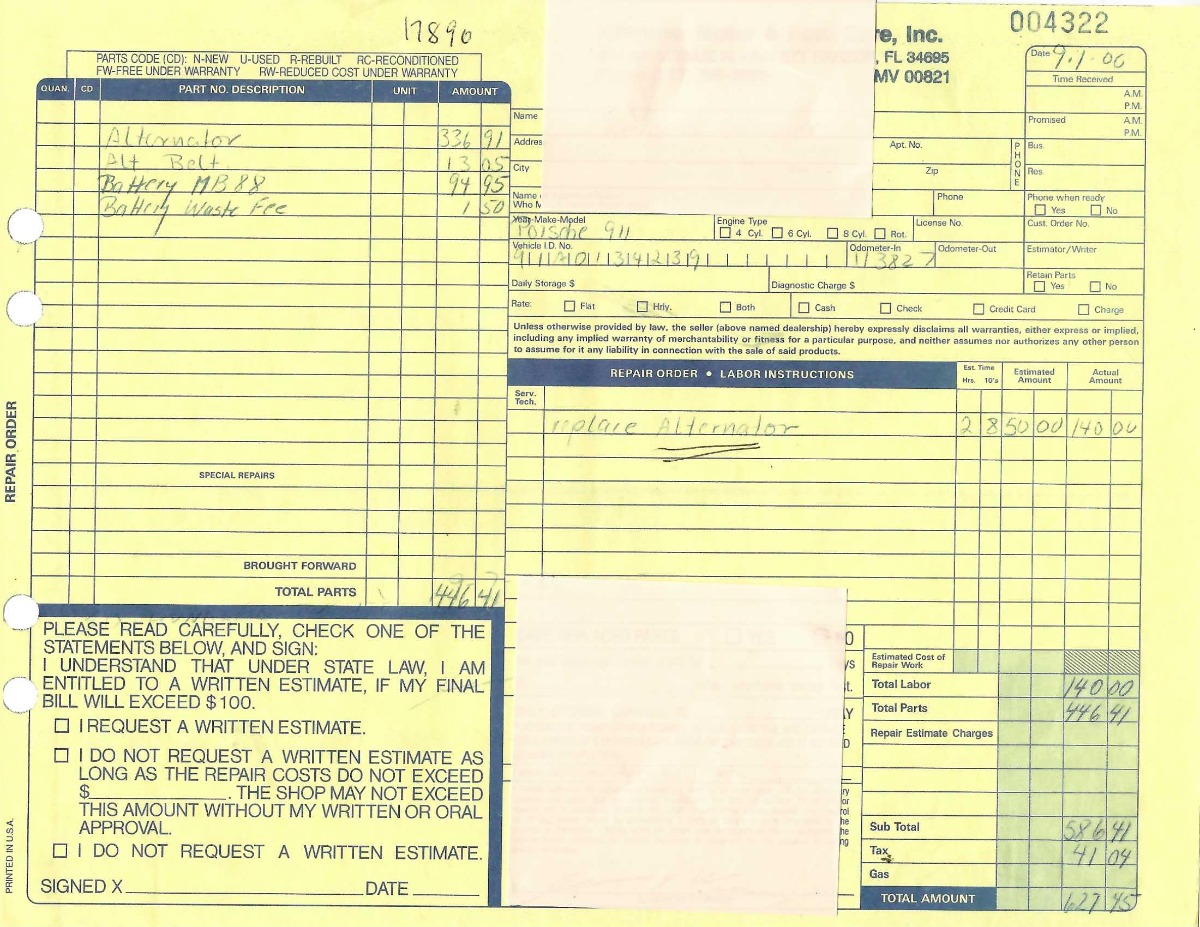 17896
004322
re, Inc.
, FL 34695
MV 00821
PARTS CODE (CD): N-NEW U-USED R-REBUILT RC-RECONDITIONED
FW-FREE UNDER WARRANTY RW-REDUCED COST UNDER WARRANTY
QUAN. CD PART NO. DESCRIPTION UNIT AMOUNT
Alternator 336 91
Alt Belt 13 05
Battery MB 88 94 95
Battery Waste Fee 1 50
SPECIAL REPAIRS
BROUGHT FORWARD
TOTAL PARTS 446 41
REPAIR ORDER
PRINTED IN U.S.A.
PLEASE READ CAREFULLY, CHECK ONE OF THE
STATEMENTS BELOW, AND SIGN:
I UNDERSTAND THAT UNDER STATE LAW, I AM
ENTITLED TO A WRITTEN ESTIMATE, IF MY FINAL
BILL WILL EXCEED $100.
I REQUEST A WRITTEN ESTIMATE.
I DO NOT REQUEST A WRITTEN ESTIMATE AS
LONG AS THE REPAIR COSTS DO NOT EXCEED
$____________. THE SHOP MAY NOT EXCEED
THIS AMOUNT WITHOUT MY WRITTEN OR ORAL
APPROVAL.
I DO NOT REQUEST A WRITTEN ESTIMATE.
SIGNED X____________ DATE ______
Date 9-1-00
Time Received
A.M.
P.M.
Promised A.M.
P.M.
Name
Addres
City
Apt. No.
Zip
PHONE
Bus.
Res.
Name
Who M
Phone
Phone when ready
Yes No
Year-Make-Model Engine Type License No. Cust. Order No.
Porsche 911 4 Cyl. 6 Cyl. 8 Cyl. Rot.
Vehicle I.D. No. Odometer-In Odometer-Out Estimator/Writer
113827
Daily Storage $ Diagnostic Charge $ Retain Parts
Yes No
Rate: Flat Hrly. Both Cash Check Credit Card Charge
Unless otherwise provided by law, the seller (above named dealership) hereby expressly disclaims all warranties, either express or implied,
including any implied warranty of merchantability or fitness for a particular purpose, and neither assumes nor authorizes any other person
to assume for it any liability in connection with the sale of said products.
REPAIR ORDER • LABOR INSTRUCTIONS Est. Time Estimated Amount Actual Amount
Hrs. 10's
Serv.
Tech.
replace Alternator 2 8 50 00 140 00
Estimated Cost of
Repair Work
Total Labor 140 00
Total Parts 446 41
Repair Estimate Charges
Sub Total 586 41
Tax 41 04
Gas
TOTAL AMOUNT 627 45